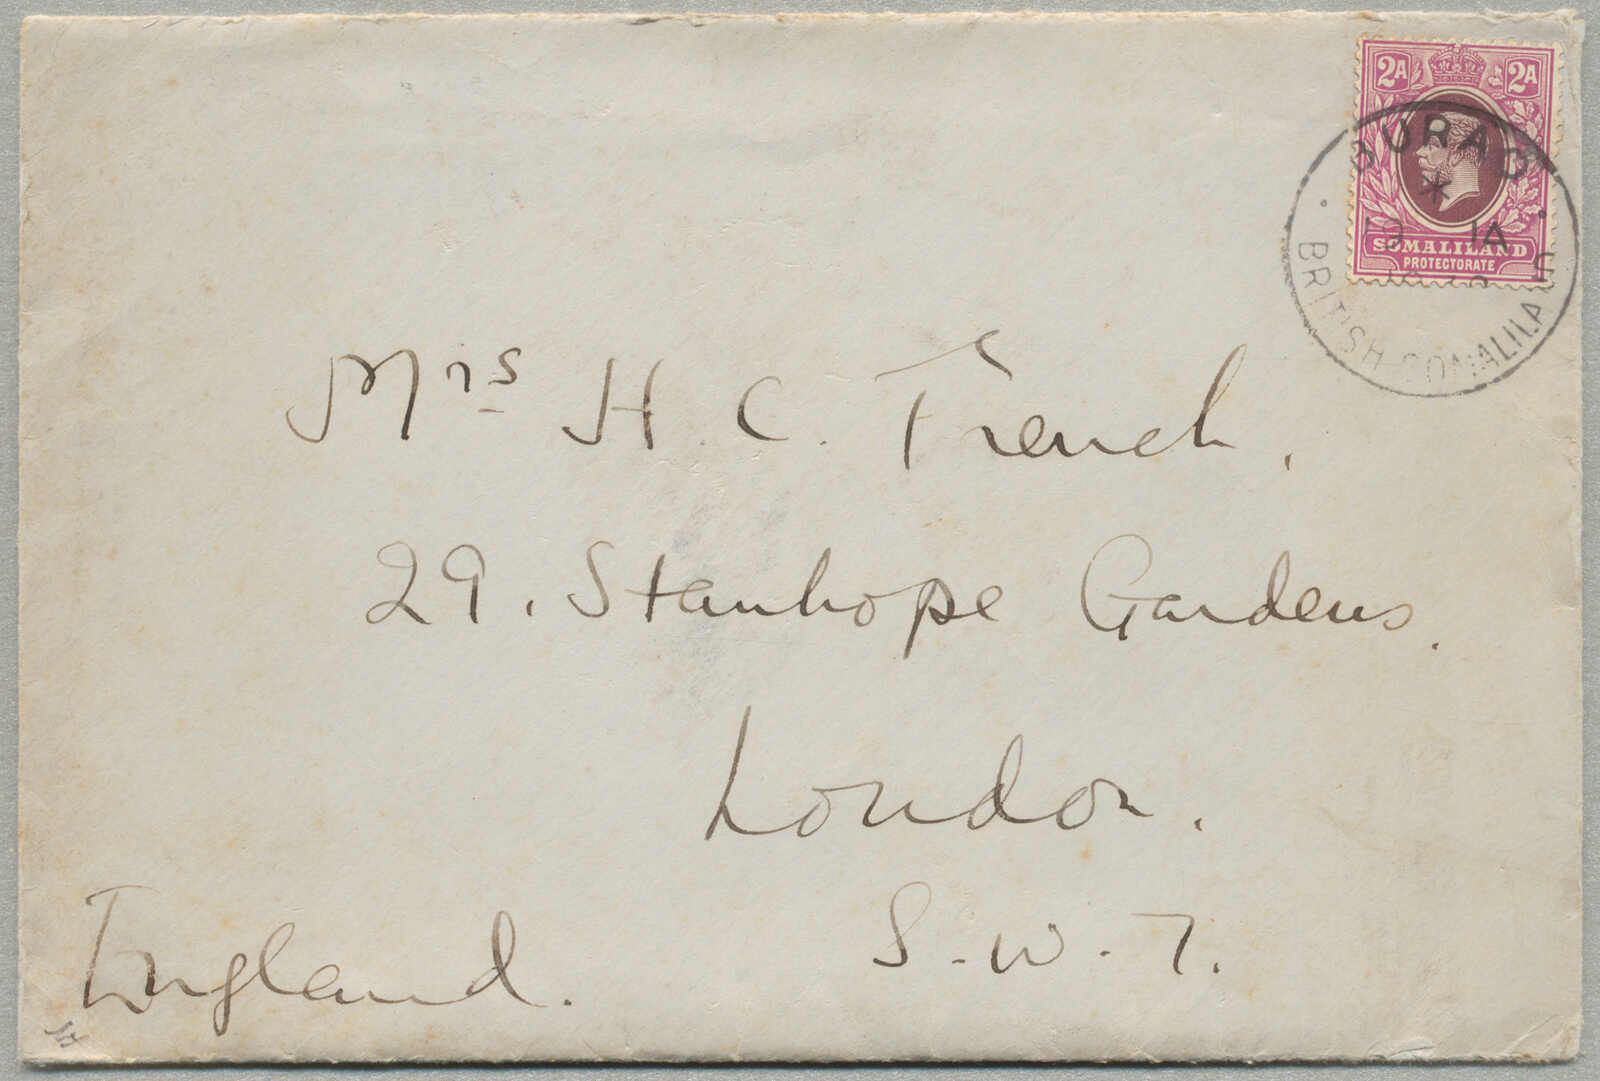 2A 2A
SOMALILAND
PROTECTORATE
BURAO
BRITISH SOMALILAND
Mrs H. C. French.
29. Stanhope Gardens.
London.
S.W.7.
England.